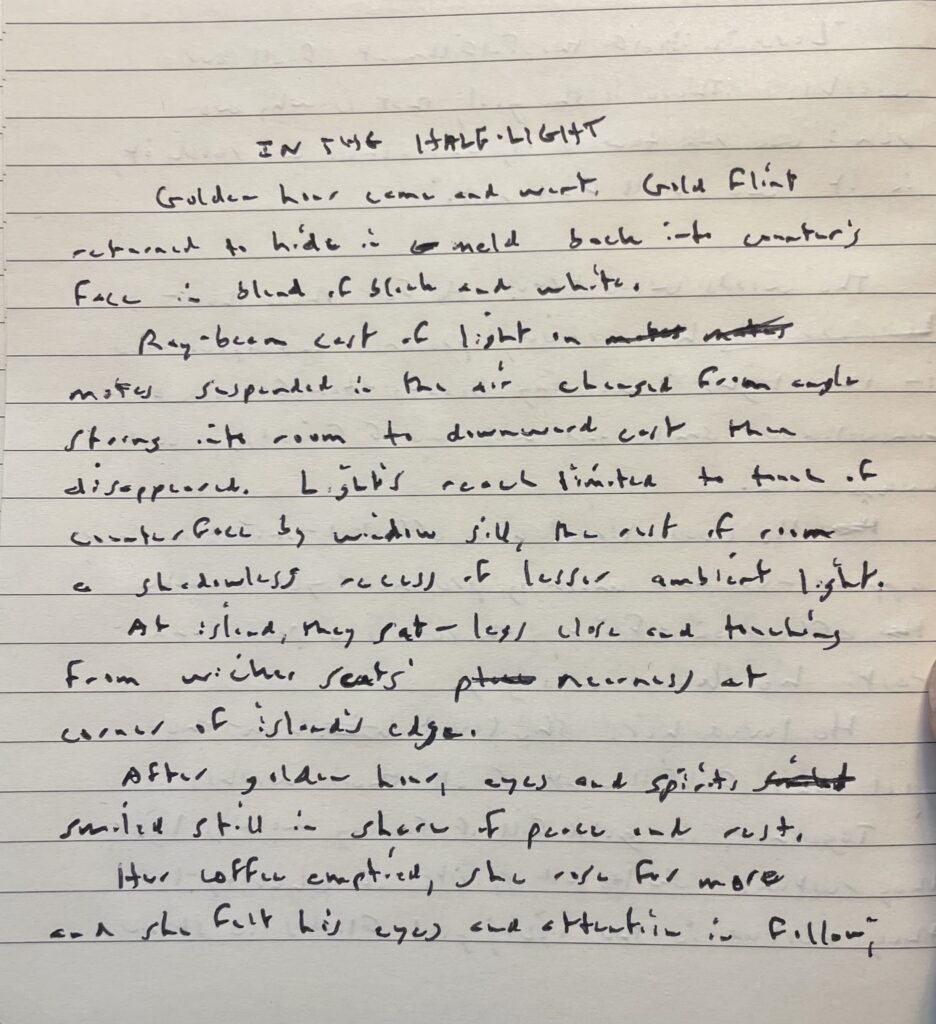 IN THE HALF-LIGHT
Golden hour came and went. Gold flint
returned to hide in meld back into counter's
face in blend of black and white.
Ray-beam cast of light on
motes suspended in the air changed from angle
strong into room to downward cast then
disappeared. Light's reach limited to touch of
counter face by window sill, the rest of room
a shadowless recess of lesser ambient light.
At island, they sat - legs close and touching
from wicker seats' nearness at
corner of island's edge.
After golden hour, eyes and spirits
smiled still in share of peace and rest.
Her coffee emptied, she rose for more
and she felt his eyes and attention in follow;